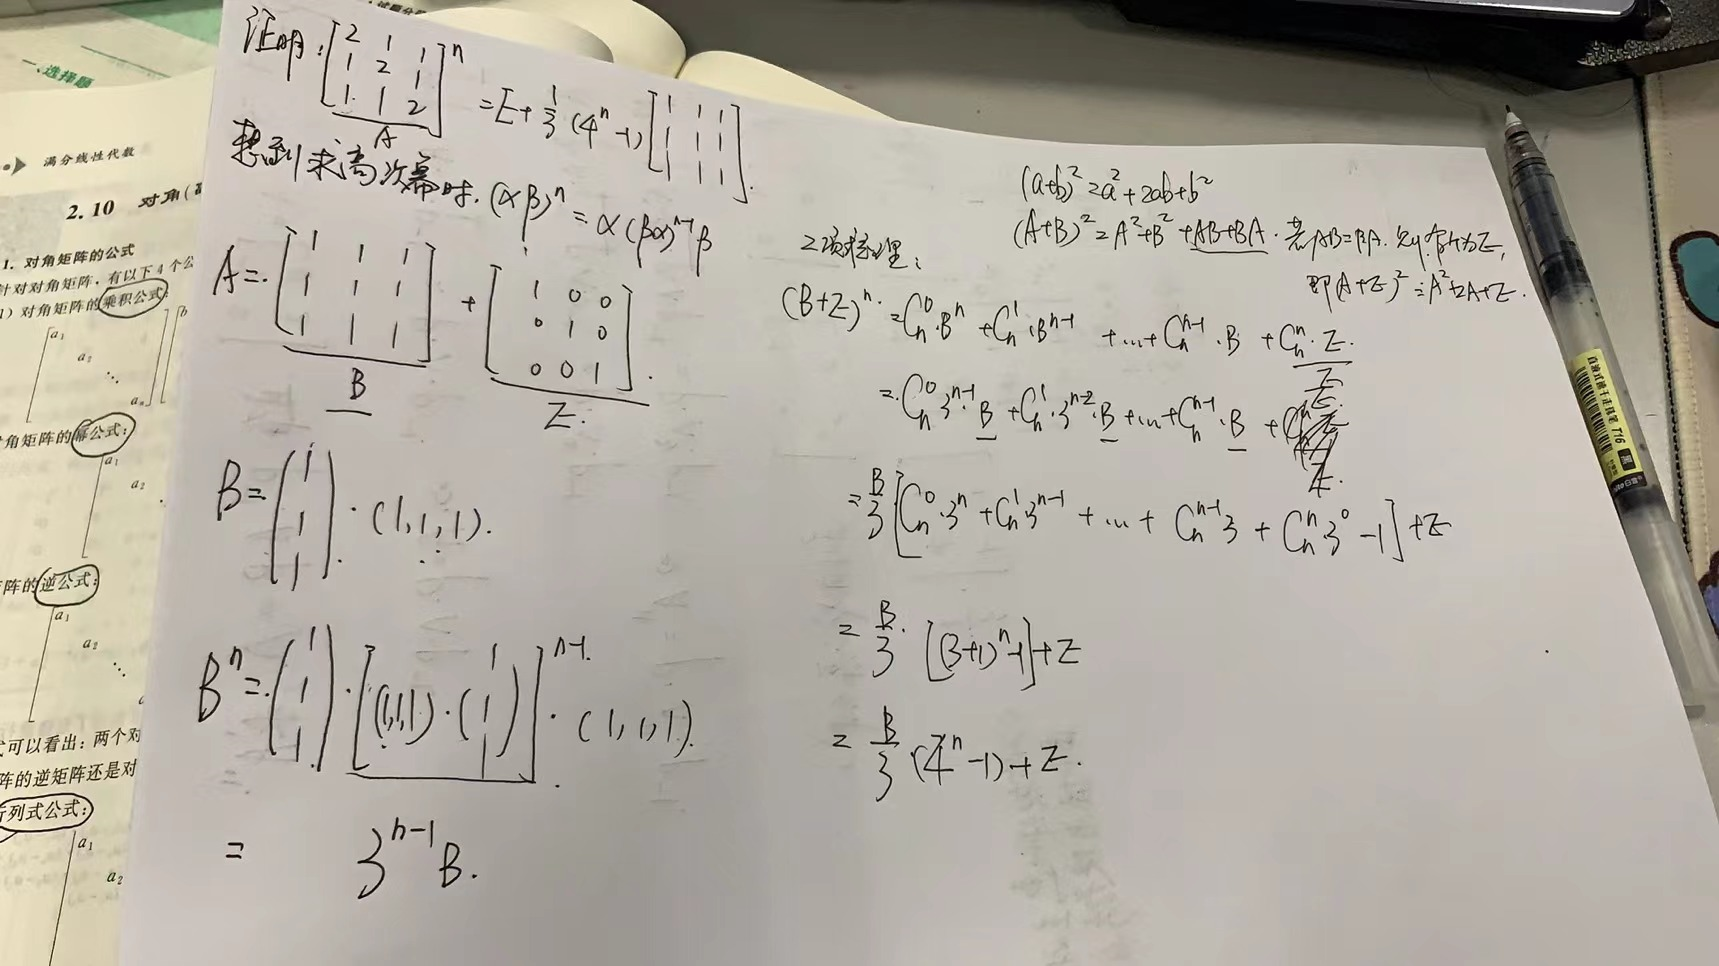 一、选择题
满分线性代数
2.10 对角(
1. 对角矩阵的公式
针对对角矩阵，有以下4个公
1) 对角矩阵的乘积公式:
a₁
a₂
⋱
aₙ
b
对角矩阵的幂公式:
a₁
a₂
矩阵的逆公式:
a₁
a₂
⋱
式可以看出：两个对
阵的逆矩阵还是对
行列式公式:
a₁
a₂
证明: [2 1 1
1 2 1
1 1 2]ⁿ = E + 1/3 (4ⁿ-1) [1 1 1
1 1 1
1 1 1].
A
想到求高次幂时. (αβ)ⁿ = α(βα)ⁿ⁻¹β
A = [1 1 1
1 1 1
1 1 1] + [1 0 0
0 1 0
0 0 1].
B E.
B = (1
1
1) · (1,1,1).
Bⁿ = (1
1
1) · [(1,1,1) · (1
1
1)]ⁿ⁻¹ · (1,1,1).
= 3ⁿ⁻¹B.
(a+b)² = a²+2ab+b²
(A+B)² = A²+B²+AB+BA. 若AB=BA. 则有A为E,
即(A+E)² = A²+2A+E.
二项式定理:
(B+E)ⁿ = Cₙ⁰·Bⁿ + Cₙ¹·Bⁿ⁻¹ + … + Cₙⁿ⁻¹·B + Cₙⁿ·E.
E
= Cₙ⁰·3ⁿ⁻¹·B + Cₙ¹·3ⁿ⁻²·B + … + Cₙⁿ⁻¹·B + E.
= B/3 [Cₙ⁰·3ⁿ + Cₙ¹3ⁿ⁻¹ + … + Cₙⁿ⁻¹3 + Cₙⁿ·3⁰ -1] + E
= B/3 · [(3+1)ⁿ-1] + E
= B/3 · (4ⁿ-1) + E.
T16
黑